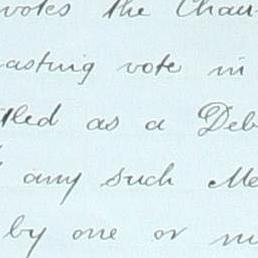 votes the Chair
casting vote in
tled as a Deb
any such Me
by one or m